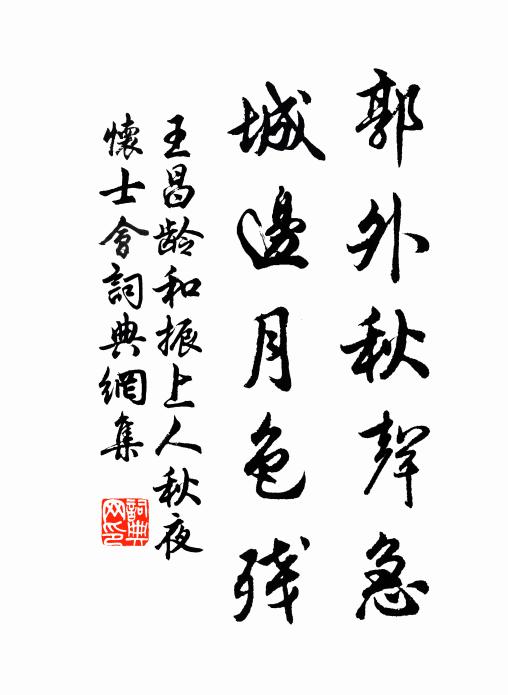 郭外秋聲急
城邊月色殘
王昌龄和振上人秋夜
懷士會詞典網集
詞典网印